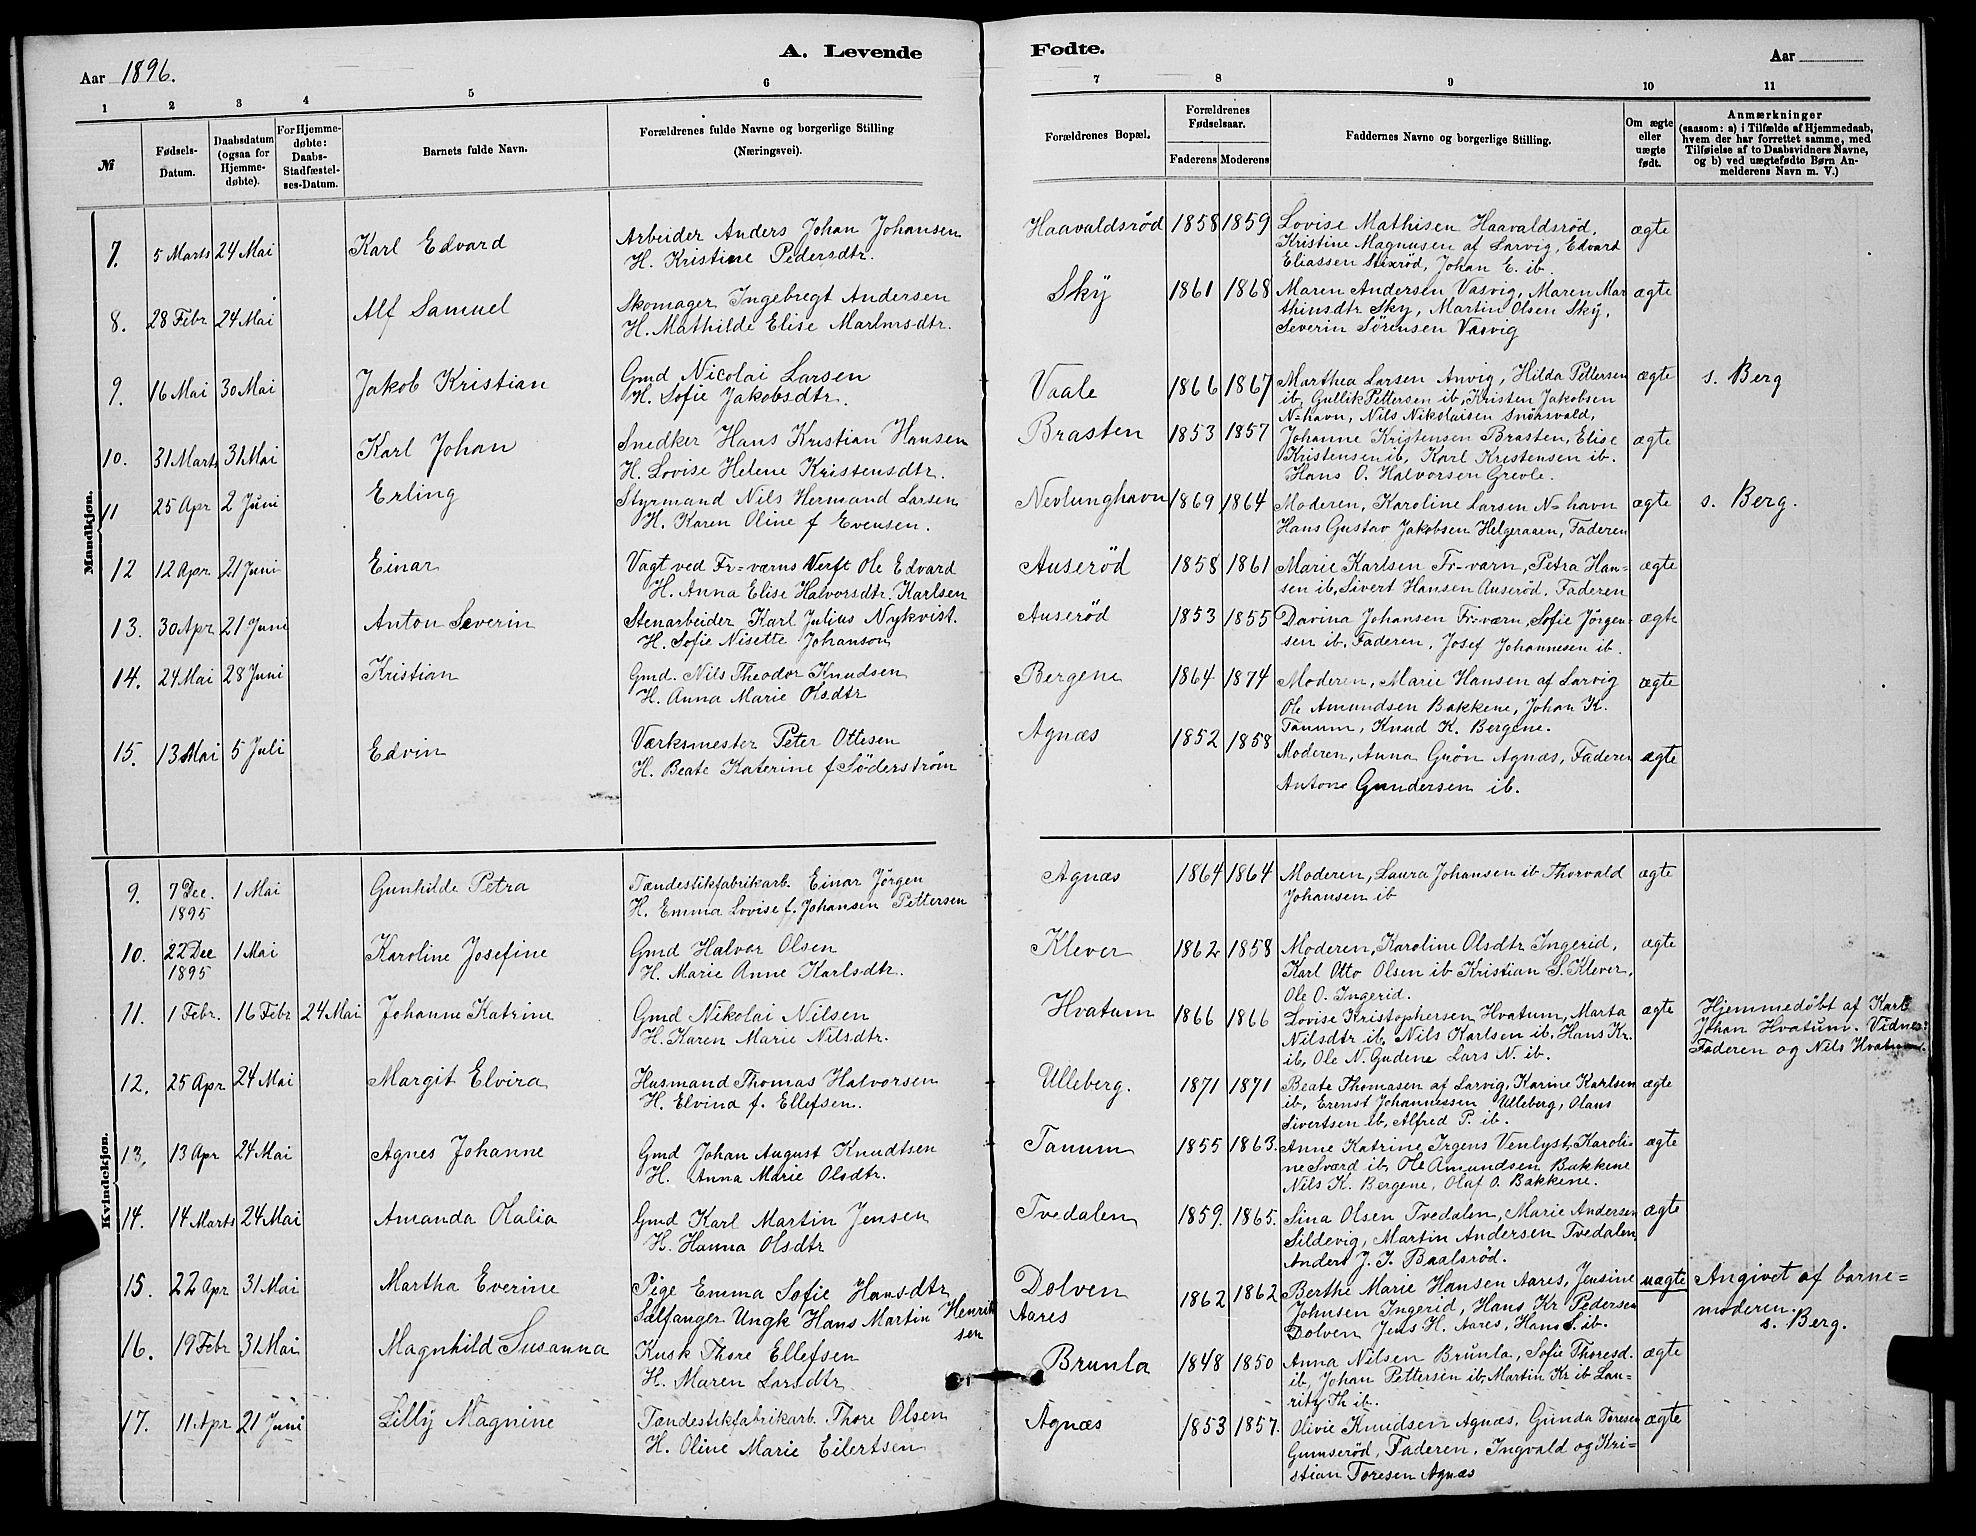 A. Levende Fødte.
Aar 1896.
Aar
1 2 3 4 5 6 7 8 9 10 11
№
Fødsels-Datum.
Daabsdatum (ogsaa for Hjemmedøbte).
For Hjemmedøbte: Daabs-Stadfæstelses-Datum.
Barnets fulde Navn.
Forældrenes fulde Navne og borgerlige Stilling (Næringsvei).
Forældrenes Bopæl.
Forældrenes Fødselsaar.
Faderens Moderens
Faddernes Navne og borgerlige Stilling.
Om ægte eller uægte født.
Anmærkninger
(saasom: a) i Tilfælde af Hjemmedaab,
hvem der har forrettet samme, med
Tilføielse af to Daabsvidners Navne,
og b) ved uægtefødte Børn Anmelderens Navn m. V.)
Mandkjøn.
7. 5 Marts 24 Mai Karl Edvard Arbeider Anders Johan Johansen Haavaldsrød 1858 1859 Lovise Mathisen Haavaldsrød, ægte
H. Kristine Pedersdtr. Kristine Magnusen af Larvig, Edvard
Eliassen Stixrød, Johan E. ib.
8. 28 Febr 24 Mai Alf Samuel Skomager Ingebregt Andersen Sky 1861 1868 Maren Andersen Vasvig, Maren Mar ægte
H. Mathilde Elise Marlmsdtr. thinsdtr Sky, Martin Olsen Sky,
Severin Sørensen Vasvig
9. 16 Mai 30 Mai Jakob Kristian Gmd Nicolai Larsen Vaale 1866 1867 Marthea Larsen Anvig, Hilda Pettersen ægte s. Berg
H. Sofie Jakobsdtr. ib, Gullik Pettersen ib, Kristen Jakobsen
N=havn, Nils Nikolaisen Snorsvald,
10. 31 Marts 31 Mai Karl Johan Snedker Hans Kristian Hansen Brasten 1853 1857 Johanne Kristensen Brasten, Elise ægte
H. Lovise Helene Kristensdtr. Kristensen ib, Karl Kristensen ib.
Hans O. Halvorsen Grevle.
11 25 Apr 2 Juni Erling Styrmand Nils Hermand Larsen Nevlunghavn 1869 1864 Moderen, Karoline Larsen N=havn ægte s. Berg.
H. Karen Oline f Evensen. Hans Gustav Jakobsen Helgeraaen, Faderen
12 12 Apr 21 Juni Einar Vagt ved Fr=værns Verft Ole Edvard Auserød 1858 1861 Marie Karlsen Fr-værn, Petra Han= ægte
H. Anna Elise Halvorsdtr. Karlsen sen ib, Sivert Hansen Auserød. Faderen
13. 30 Apr 21 Juni Anton Severin Stenarbeider Karl Julius Nykvist. Auserød 1853 1855 Davina Johansen Fr=værn, Sofie Jörgen= ægte
H. Sofie Nisette Johanson sen ib. Faderen, Josef Johannesen ib.
14. 24 Mai 28 Juni Kristian Gmd. Nils Theodor Knudsen Bergene 1864 1874 Moderen, Marie Hansen af Larvig ægte
H. Anna Marie Olsdtr Ole Amundsen Bakkene, Johan K.
Tanum, Knud K. Bergene.
15. 13 Mai 5 Juli Edvin Værksmester Peter Ottesen Agnæs 1852 1858 Moderen, Anna Grøn Agnæs, Faderen ægte
H. Beate Katerine f Söderstrøm Anton Gundersen ib.
Kvindekjøn.
9. 7 Dec. 1895 1 Mai Gunhilde Petra Tændestikfabrikarb. Einar Jørgen Agnæs 1864 1864 Moderen, Laura Johansen ib Thorvald ægte
H. Emma Lovise f. Johansen Pettersen Johansen ib
10. 22 Dec 1895 1 Mai Karoline Josefine Gmd Halvor Olsen Klever 1862 1858 Moderen, Karoline Olsdtr Ingerid, ægte
H. Marie Anne Karlsdtr. Karl Otto Olsen ib Kristian S. Klever,
Ole O. Ingerid.
11. 1 Febr. 16 Febr 24 Mai Johanne Katrine Gmd Nikolai Nilsen Hvatum 1866 1866 Lovise Kristophersen Hvatum, Marta ægte Hjemmedöbt af Karl
H. Karen Marie Nilsdtr. Nilsdtr ib, Nils Karlsen ib. Hans Kr. Johan Hvatum. Vidner:
ib, Ole N. Gudene Lars N. ib. Faderen og Nils Hvatum.
12. 25 Apr 24 Mai Margit Elvira Husmand Thomas Halvorsen Ulleberg. 1871 1871 Beate Thomasen af Larvig, Karine Karlsen ægte
H. Elvind f. Ellefsen. ib, Ernst Johannessen Ulleberg, Olaus
Sivertsen ib, Alfred P. ib.
13. 13 Apr 24 Mai Agnes Johanne Gmd Johan August Knudtsen Tanum 1855 1863. Anne Katrine Irgens Venlyst, Karoli= ægte
H. Anna Marie Olsdtr. ne Sværd ib, Ole Amundsen Bakkene
Nils K. Bergene, Olaf O. Bakkene.
14. 14 Marts 24 Mai Amanda Otalia Gmd Karl Martin Jensen Tvedalen 1859. 1865. Sina Olsen Tvedalen, Marie Andersen ægte
H. Hanna Olsdtr Sildevig, Martin Andersen Tvedalen,
Anders J. I. Baalsrød.
15. 22 Apr 31 Mai Martha Everine Pige Emma Sofie Hansdtr Dolven 1862 1862 Berthe Marie Hansen Aares, Jensine uægte Angivet af barne=
Sælfanger Ungk Hans Martin Henrik Aares Johnsen Ingerid, Hans Kr Pedersen moderen.
sen Dolven Jens H. Aares, Hans S. ib. s. Berg.
16. 19 Febr 31 Mai Magnhild Susanna Kusk Thore Ellefsen Brunla 1848 1850 Anna Nilsen Brunla, Sofie Thoresd. ægte
H. Maren Larsdtr ib, Johan Pettersen ib, Martin Kr ib Lau=
ritz Th ib.
17. 11 Apr 21 Juni Lilly Magnine Tændestikfabrikarb. Thore Olsen Agnæs 1853 1857. Olivie Knudsen Agnæs, Gunda Toresen ægte
H. Oline Marie Eilertsen Gumserød, Faderen, Ingvald og Kri=
stian Toresen Agnæs